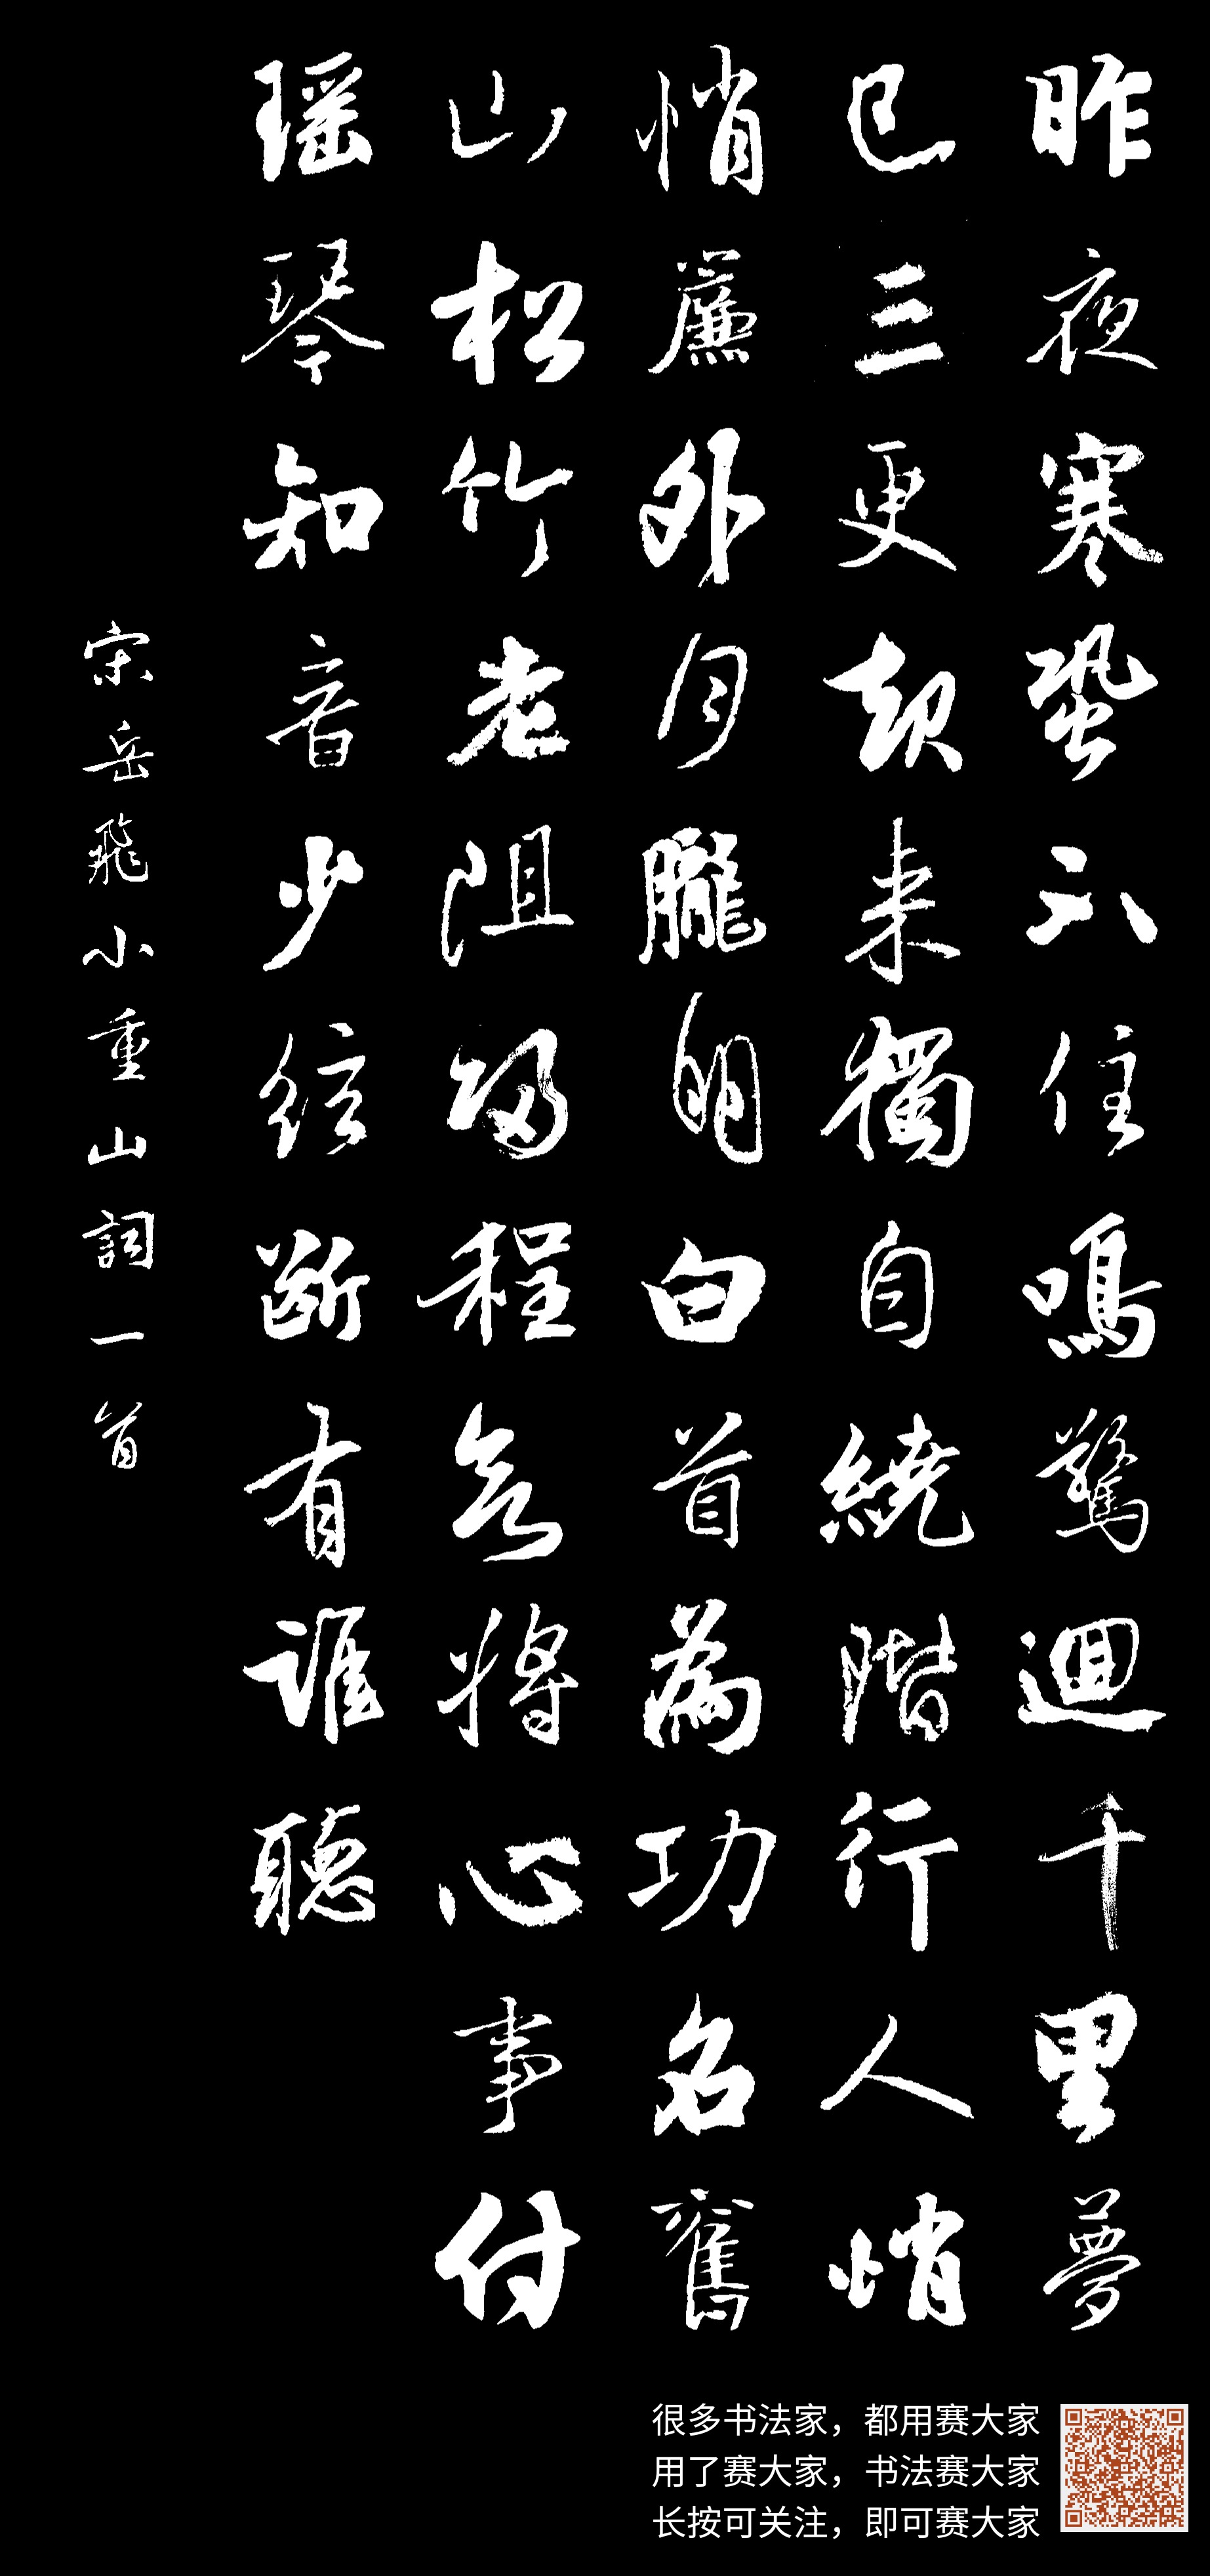 昨夜寒蛩不住鳴驚迴千里夢
已三更起来獨自繞階行人悄
悄簾外月朧明白首為功名舊
山松竹老阻歸程欲將心事付
瑶琴知音少弦断有誰聽
宋岳飛小重山詞一首
很多书法家，都用赛大家
用了赛大家，书法赛大家
长按可关注，即可赛大家